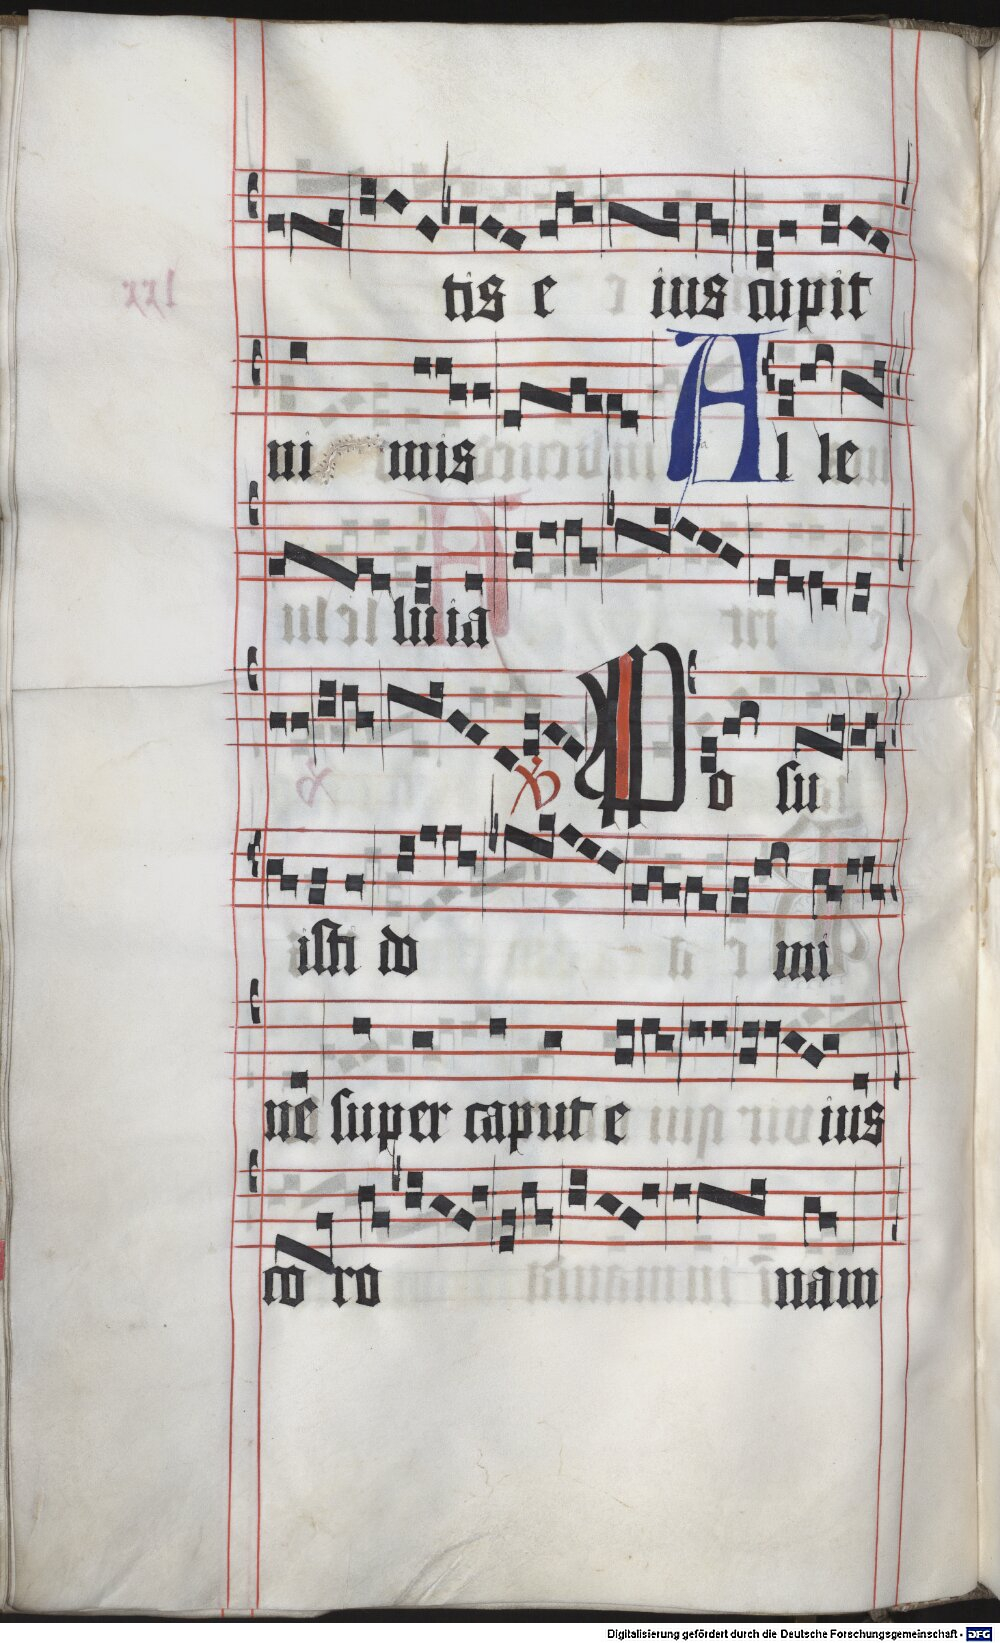 tis e ius cupit
ni mis Al le
lu ia
℣ Po su
isti do mi
ne super caput e ius
co ro nam
Digitalisierung gefördert durch die Deutsche Forschungsgemeinschaft - DFG